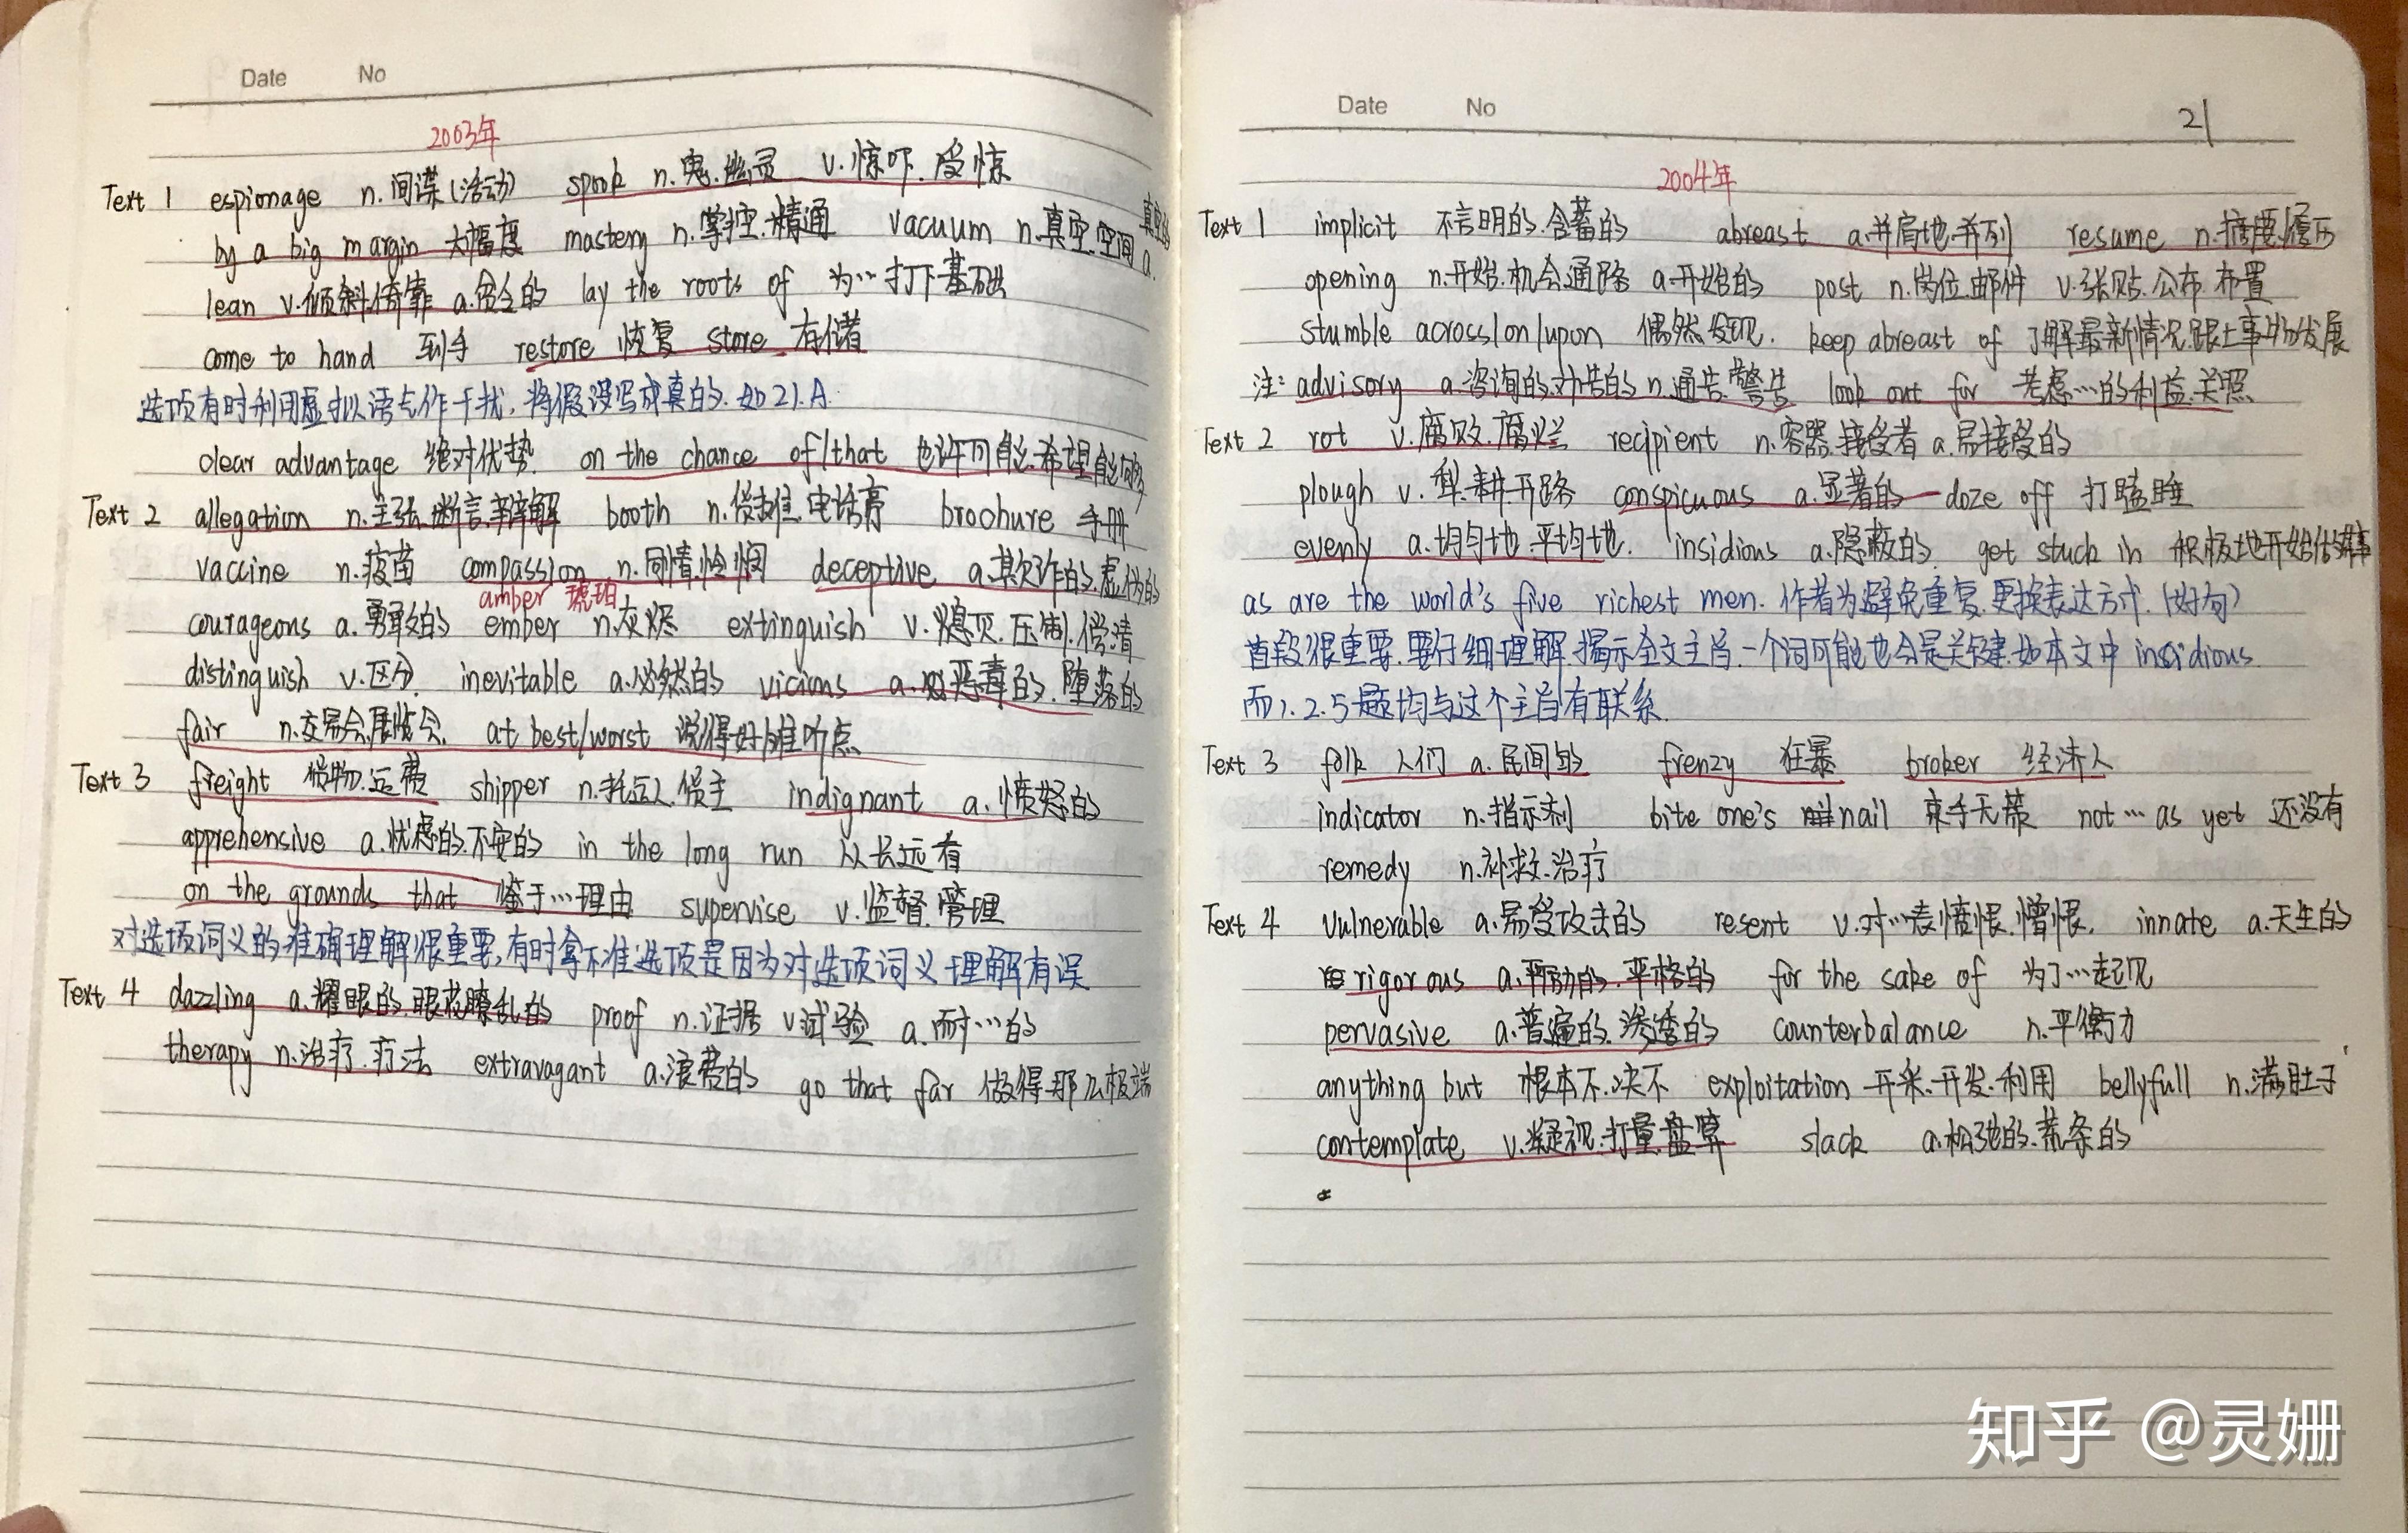 Date No
2003年
Text 1 espionage n.间谍(活动) spook n.鬼.幽灵 v.惊吓.受惊
by a big margin 大幅度 mastery n.掌控.精通 vacuum n.真空.空间 a.真空的
lean v.倾斜倚靠 a.贫乏的 lay the roots of 为…打下基础
come to hand 到手 restore 恢复 store 存储
选项有时利用虚拟语气作干扰,将假设写成真的.如21.A.
clear advantage 绝对优势 on the chance of/that 也许可能.希望能够
Text 2 allegation n.主张.断言.辩解 booth n.货摊.电话亭 brochure 手册
vaccine n.疫苗 compassion n.同情.怜悯 deceptive a.欺诈的.虚伪的
amber 琥珀
courageous a.勇敢的 ember n.灰烬 extinguish v.熄灭.压制.偿清
distinguish v.区分 inevitable a.必然的 vicious a.恶毒的.堕落的
fair n.交易会.展览会 at best/worst 说得好/难听点
Text 3 freight 货物.运费 shipper n.托运人.货主 indignant a.愤怒的
apprehensive a.忧虑的.不安的 in the long run 从长远看
on the grounds that 鉴于…理由 supervise v.监督.管理
对选项词义的准确理解很重要,有时拿不准选项是因为对选项词义理解有误
Text 4 dazzling a.耀眼的.眼花瞭乱的 proof n.证据 v.试验 a.耐…的
therapy n.治疗.疗法 extravagant a.浪费的 go that far 做得那么极端
Date No
21
2004年
Text 1 implicit 不言明的.含蓄的 abreast a.并肩地.并列 resume n.摘要.履历
opening n.开始.机会.通路 a.开始的 post n.岗位.邮件 v.张贴.公布.布置
stumble across/on/upon 偶然发现. keep abreast of 了解最新情况.跟上事物发展
注: advisory a.咨询的.劝告的 n.通告.警告 look out for 考虑…的利益.关照
Text 2 rot v.腐败.腐烂 recipient n.容器.接受者 a.易接受的
plough v.犁.耕.开路 conspicuous a.显著的 doze off 打瞌睡
evenly a.均匀地.平均地. insidious a.隐蔽的 get stuck in 积极地开始做某事
as are the world's five richest men. 作者为避免重复.更换表达方式.(好句)
首段很重要.要仔细理解.揭示全文主旨.一个词可能也会是关键.如本文中 insidious
而1.2.5题均与这个主旨有联系.
Text 3 folk 人们 a.民间的 frenzy 狂暴 broker 经济人
indicator n.指示剂 bite one's nail 束手无策 not … as yet 还没有
remedy n.补救.治疗
Text 4 vulnerable a.易受攻击的 resent v.对…表愤恨.憎恨. innate a.天生的
rigorous a.严格的 for the sake of 为了…起见
pervasive a.普遍的.渗透的 counterbalance n.平衡力
anything but 根本不.决不 exploitation 开采.开发.利用 bellyfull n.满肚子
contemplate v.凝视.打量.盘算 slack a.松弛的.萧条的
知乎 @灵姗